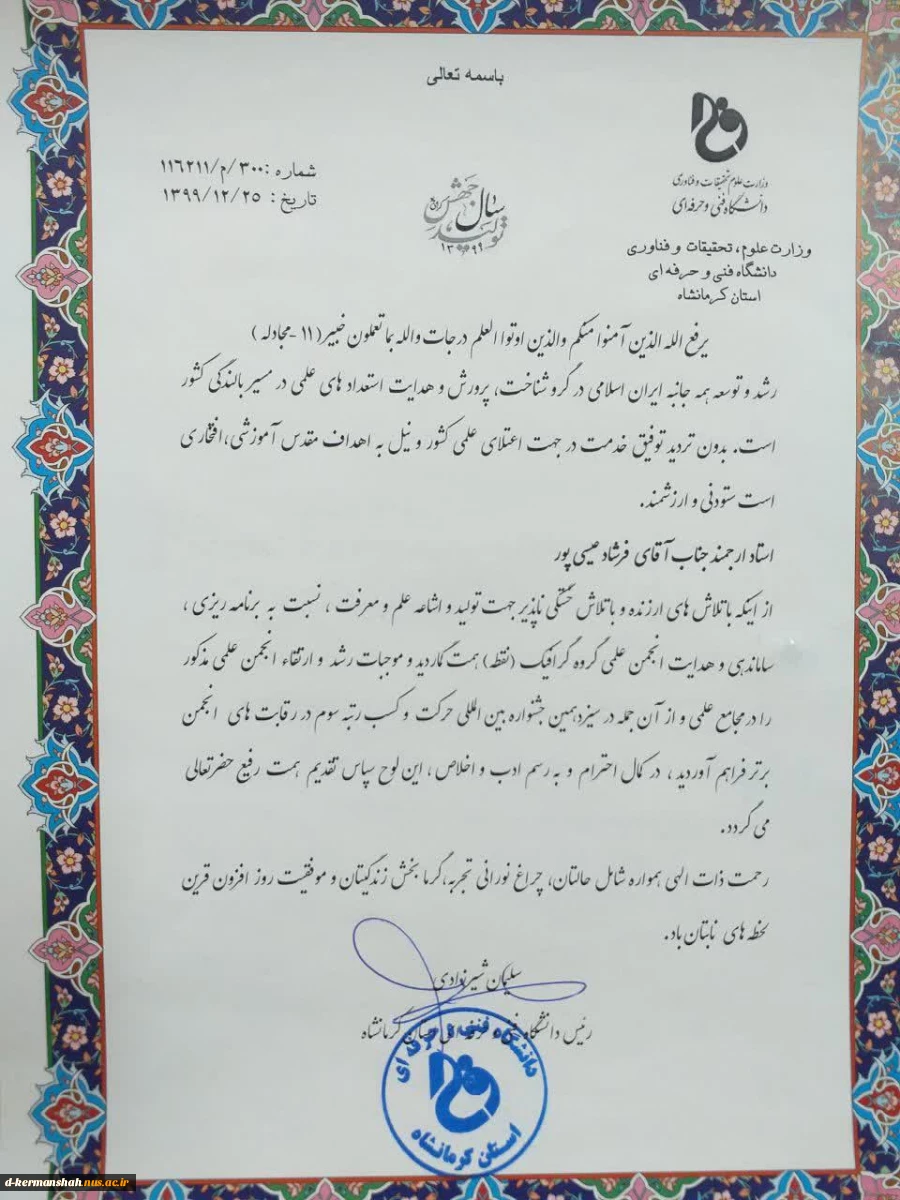 باسمه تعالی
وزارت علوم تحقیقات و فناوری
دانشگاه فنی و حرفه‌ای
شماره :۳۰۰/م/۱۱۶۲۱۱
تاریخ : ۱۳۹۹/۱۲/۲۵
سال جهش تولید
۱۳۹۹
وزارت علوم، تحقیقات و فناوری
دانشگاه فنی و حرفه ای
استان کرمانشاه
یرفع الله الذین آمنوا منکم والذین اوتوا العلم درجات والله بما تعملون خبیر( ۱۱ -مجادله )
رشد و توسعه همه جانبه ایران اسلامی در گرو شناخت، پرورش و هدایت استعداد های علمی در مسیر بالندگی کشور
است. بدون تردید توفیق خدمت در جهت اعتلای علمی کشور و نیل به اهداف مقدس آموزشی،افتخاری
است ستودنی و ارزشمند.
استاد ارجمند جناب آقای فرشاد عیسی پور
از اینکه با تلاش های ارزنده و با تلاش خستگی ناپذیر جهت تولید و اشاعه علم و معرفت ، نسبت به برنامه ریزی ،
ساماندهی و هدایت انجمن علمی گروه گرافیک (نقطه) همت گماردید و موجبات رشد و ارتقاء انجمن علمی مذکور
را در مجامع علمی و از آن جمله در سیزدهمین جشنواره بین المللی حرکت و کسب رتبه سوم در رقابت های انجمن
برتر فراهم آوردید ، در کمال احترام و به رسم ادب و اخلاص ، این لوح سپاس تقدیم همت رفیع حضرتعالی
می گردد.
رحمت ذات الهی همواره شامل حالتان، چراغ نورانی تجربه،گرما بخش زندگیتان و موفقیت روز افزون قرین
لحظه های نابتان باد.
سلیمان شیرنوادی
رئیس دانشگاه فنی و حرفه ای استان کرمانشاه
دانشگاه فنی و حرفه ای
استان کرمانشاه
d-kermanshah.nus.ac.ir